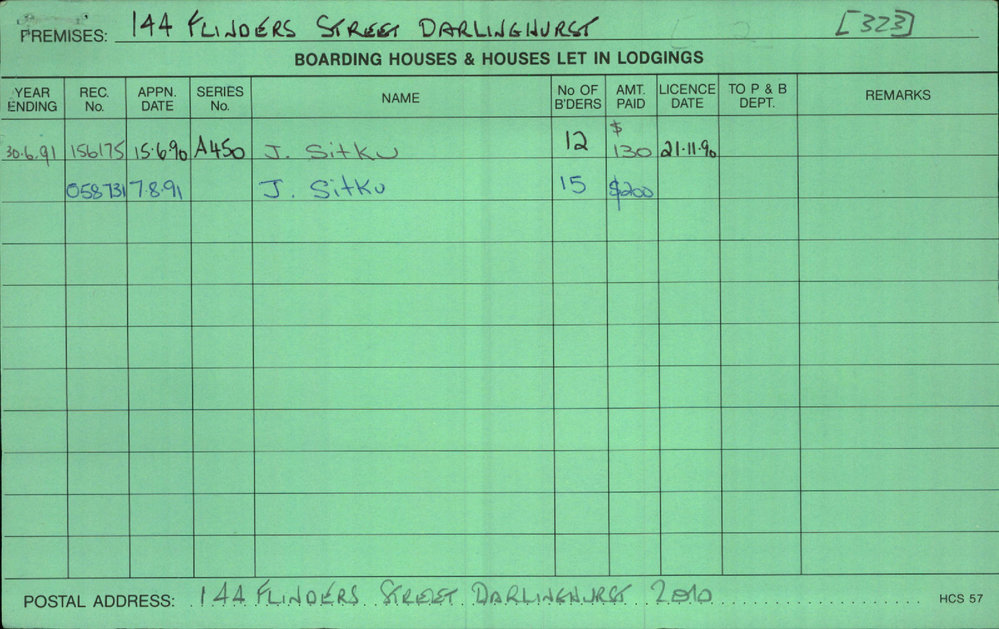 PREMISES: 144 FLINDERS STREET DARLINGHURST [323]
BOARDING HOUSES & HOUSES LET IN LODGINGS
YEAR ENDING REC. No. APPN. DATE SERIES No. NAME No OF B'DERS AMT. PAID LICENCE DATE TO P & B DEPT. REMARKS
30.6.91 156175 15.6.90 A450 J. SitKu 12 $130 21.11.90
058731 7.8.91 J. SitKu 15 $200
POSTAL ADDRESS: 144 FLINDERS STREET DARLINGHURST 2010 HCS 57